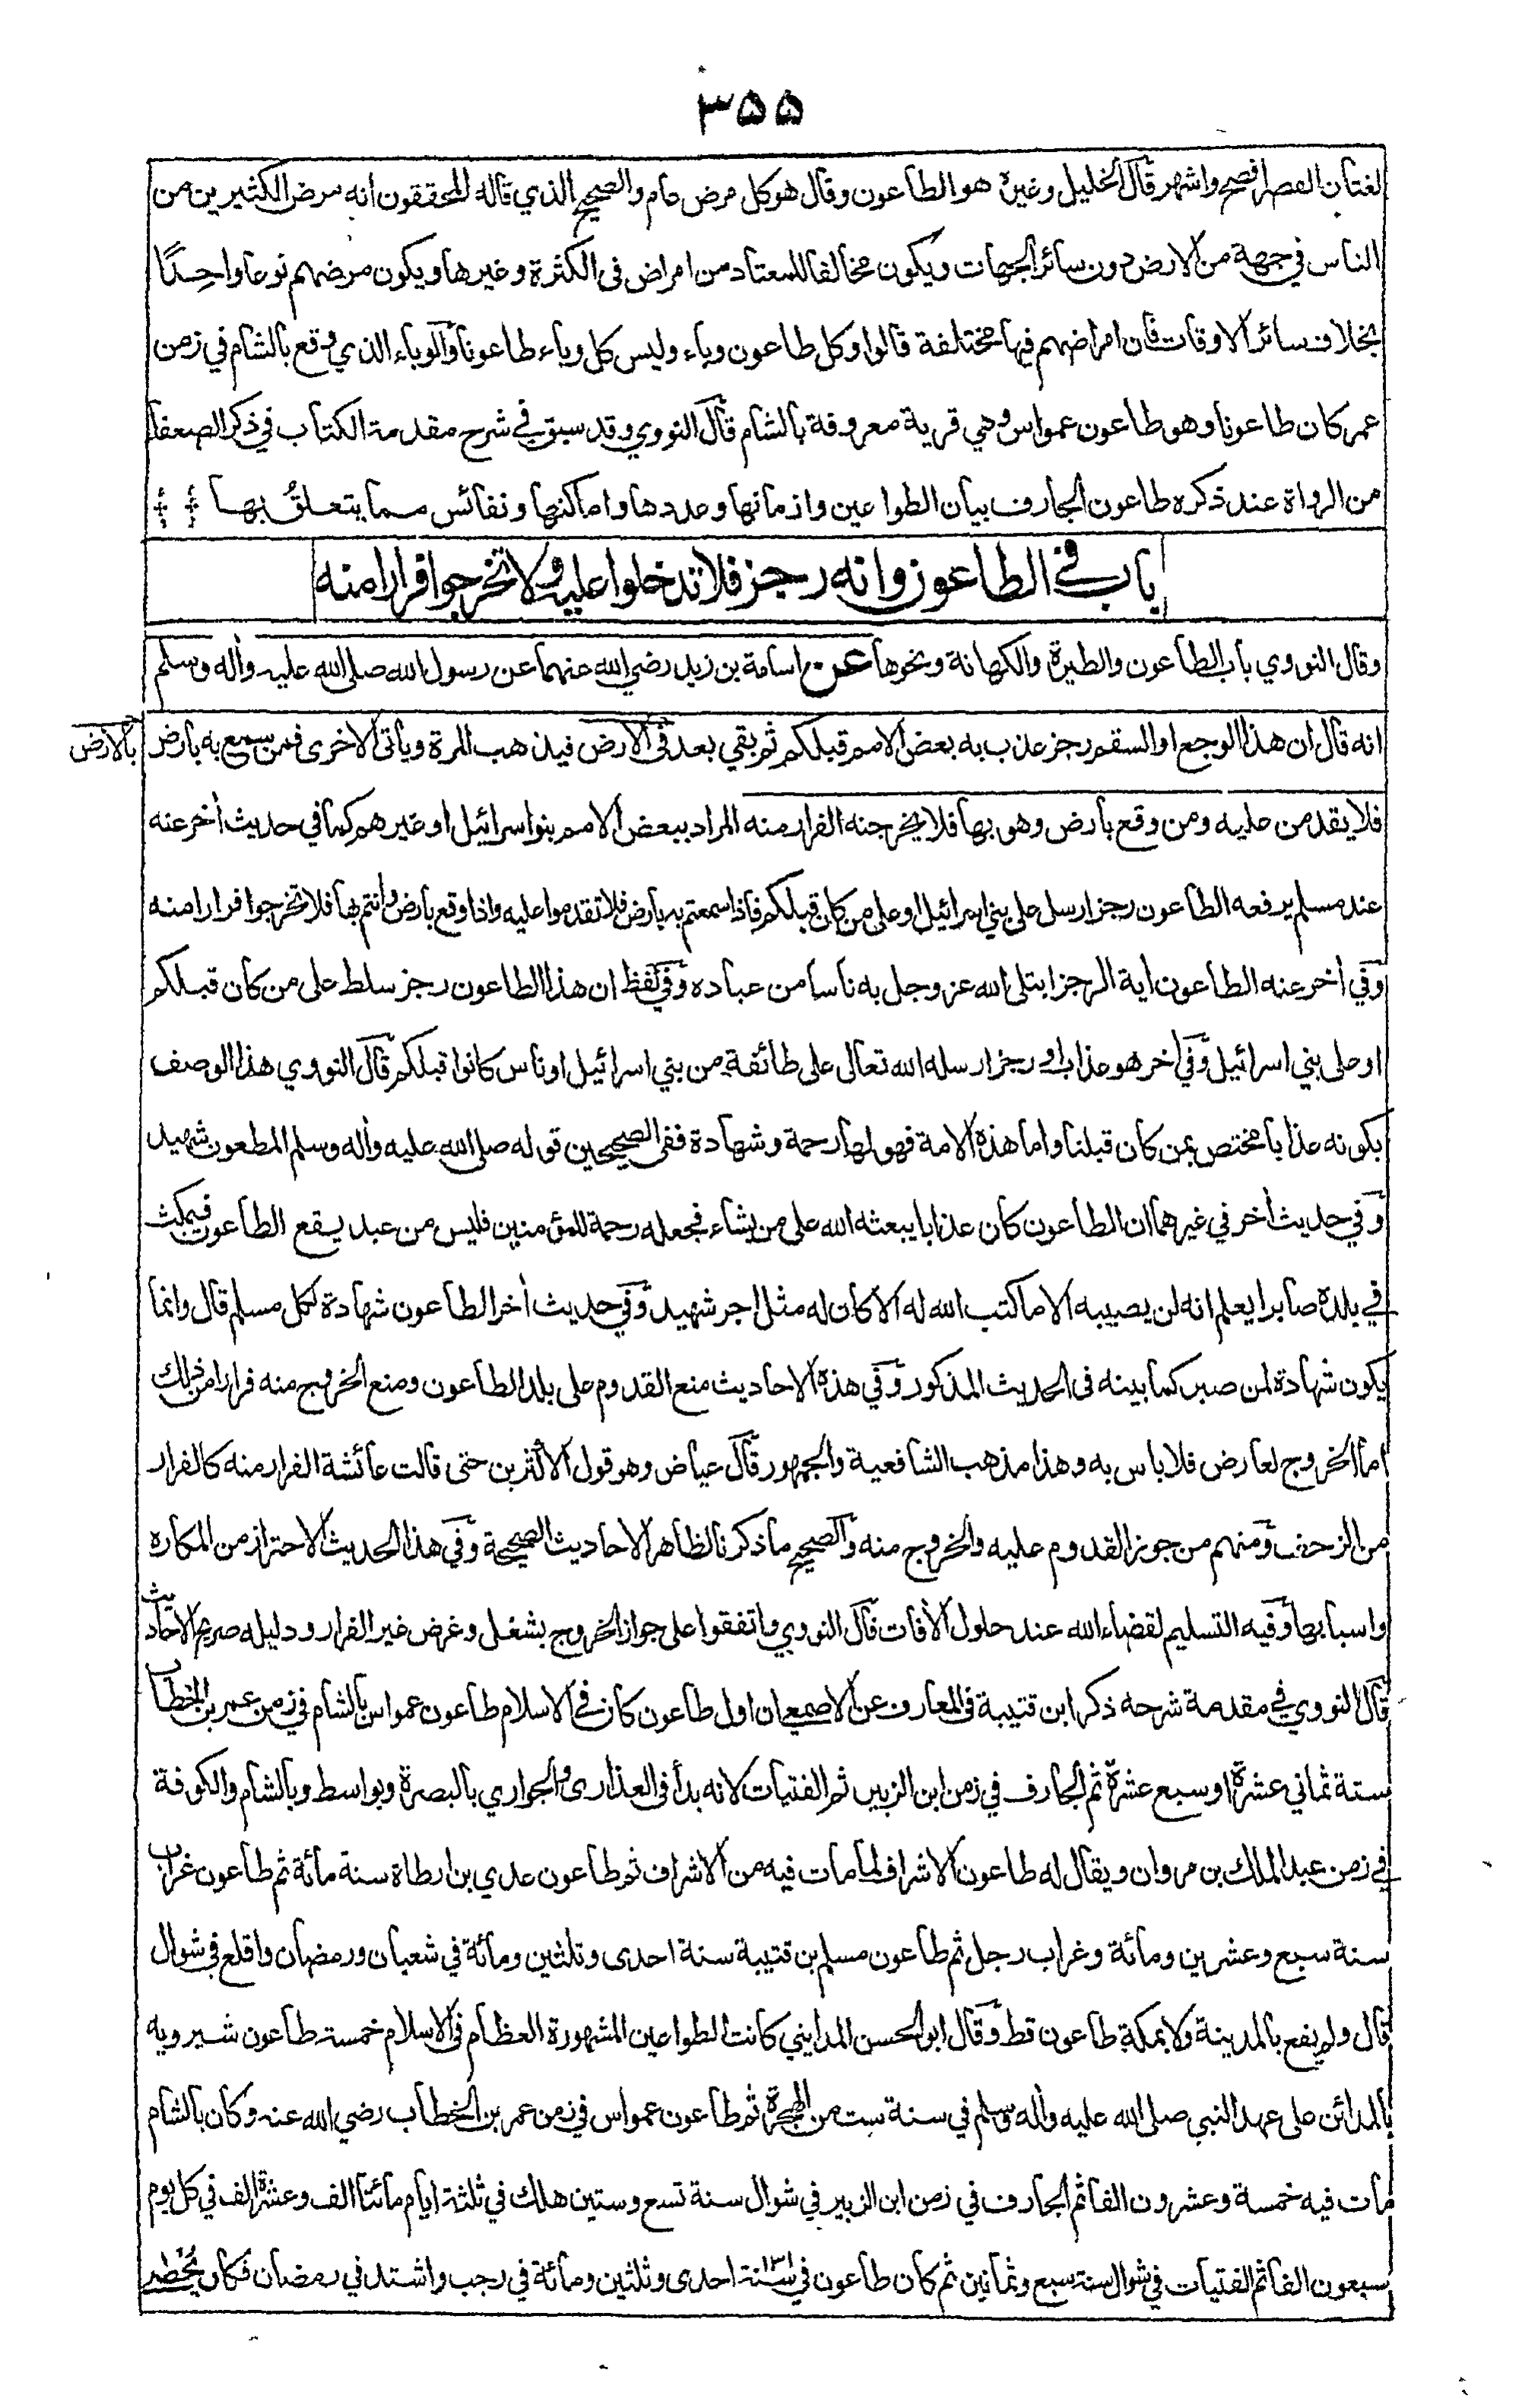 ٣٥٥
لغتان القصر افصح واشهر قال الخليل وغيره هو الطاعون وقال هو كل مرض عام والصحيح الذي قاله المحققون انه مرض الكثيرين من
الناس في جهة من الارض دون سائر الجهات ويكون مخالفا للمعتاد من امراض فى الكثرة وغيرها ويكون مرضهم نوعا واحِدًا
بخلاف سائر الاوقات فان امراضهم فيها مختلفة قالوا وكل طاعون وباء وليس كل وباء طاعونا والوباء الذي وقع بالشام في زمن
عمر كان طاعونا وهو طاعون عمواس وهي قرية معروفة بالشام قال النووي وقد سبق في شرح مقدمة الكتاب في ذكر الضعفا
من الرواة عند ذكره طاعون الجارف بيان الطواعين وازمانها وعددها واماكنها ونفائس مما يتعلقُ بها
باب في الطاعون وانه رجز فلا تدخلوا عليه ولا تخرجوا فرارا منه
وقال النووي باب الطاعون والطيرة والكهانة ونحوها عن اسامة بن زيد رضي الله عنهما عن رسول الله صلى الله عليه واٰله وسلم
انه قال ان هذا الوجع او السقم رجز عذب به بعض الامم قبلكم ثم بقي بعد فى الارض فيذهب المرة ويأتى الاخرى فمن سمع به بارض
بالارض
فلا يقدمن عليه ومن وقع بارض وهو بها فلا يخرجنه الفرار منه المراد ببعض الامم بنو اسرائيل او غيرهم كما في حديث اٰخر عنه
عند مسلم يرفعه الطاعون رجز ارسل على بني اسرائيل او على من كان قبلكم فاذا سمعتم به بارض فلا تقدموا عليه واذا وقع بارض وانتم بها فلا تخرجوا فرارا منه
وفي اٰخر عنه الطاعون اية الرجز ابتلى الله عز وجل به ناسا من عباده وفي لفظ ان هذا الطاعون رجز سلط على من كان قبلكم
او على بني اسرائيل وفي اٰخر هو عذاب او رجز ارسله الله تعالى على طائفة من بني اسرائيل او ناس كانوا قبلكم قال النووي هذا الوصف
بكونه عذابا مختص بمن كان قبلنا واما هذه الامة فهو لها رحمة وشهادة ففى الصحيحين قوله صلى الله عليه واٰله وسلم المطعون شهيد
وفي حديث اٰخر في غيرهما ان الطاعون كان عذابا يبعثه الله على من يشاء فجعله رحمة للمؤمنين فليس من عبد يقع الطاعون فيمكث
في بلده صابرا يعلم انه لن يصيبه الا ما كتب الله له الا كان له مثل اجر شهيد وفي حديث اٰخر الطاعون شهادة لكل مسلم قال وانما
يكون شهادة لمن صبر كما بينه فى الحديث المذكور وفي هذه الاحاديث منع القدوم على بلد الطاعون ومنع الخروج منه فرارا من ذلك
اما الخروج لعارض فلا باس به وهذا مذهب الشافعية والجمهور قال عياض وهو قول الاكثرين حتى قالت عائشة الفرار منه كالفرار
من الزحف ومنهم من جوز القدوم عليه والخروج منه والصحيح ما ذكرنا لظاهر الاحاديث الصحيحة وفي هذا الحديث الاحتراز من المكاره
واسبابها وفيه التسليم لقضاء الله عند حلول الاٰفات قال النووي واتفقوا على جواز الخروج بشغل وغرض غير الفرار ودليله صريح الاحاديث
قال النووي في مقدمة شرحه ذكر ابن قتيبة فى المعارف عن الاصمعي ان اول طاعون كان في الاسلام طاعون عمواس بالشام في زمن عمر بن الخطاب
سنة ثماني عشرة او سبع عشرة ثم الجارف في زمن ابن الزبير ثم الفتيات لانه بدأ فى العذارى والجواري بالبصرة وبواسط وبالشام والكوفة
في زمن عبد الملك بن مروان ويقال له طاعون الاشراف لما مات فيه من الاشراف ثم طاعون عدي بن ارطاة سنة مائة ثم طاعون غراب
سنة سبع وعشرين ومائة وغراب رجل ثم طاعون مسلم بن قتيبة سنة احدى وثلثين ومائة في شعبان ورمضان واقلع في شوال
قال ولم يقع بالمدينة ولا بمكة طاعون قط وقال ابو الحسن المدايني كانت الطواعين المشهورة العظام فى الاسلام خمسة طاعون شيرويه
بالمدائن على عهد النبي صلى الله عليه واٰله وسلم في سنة ست من الهجرة ثم طاعون عمواس في زمن عمر بن الخطاب رضي الله عنه وكان بالشام
مات فيه خمسة وعشرون الفا ثم الجارف في زمن ابن الزبير في شوال سنة تسع وستين هلك في ثلثة ايام مائتا الف وعشرة الف في كل يوم
سبعون الفا ثم الفتيات في شوال سنة سبع وثمانين ثم كان طاعون في ١٣١ سنة احدى وثلثين ومائة في رجب واشتد في رمضان فكان يُحْصٰى